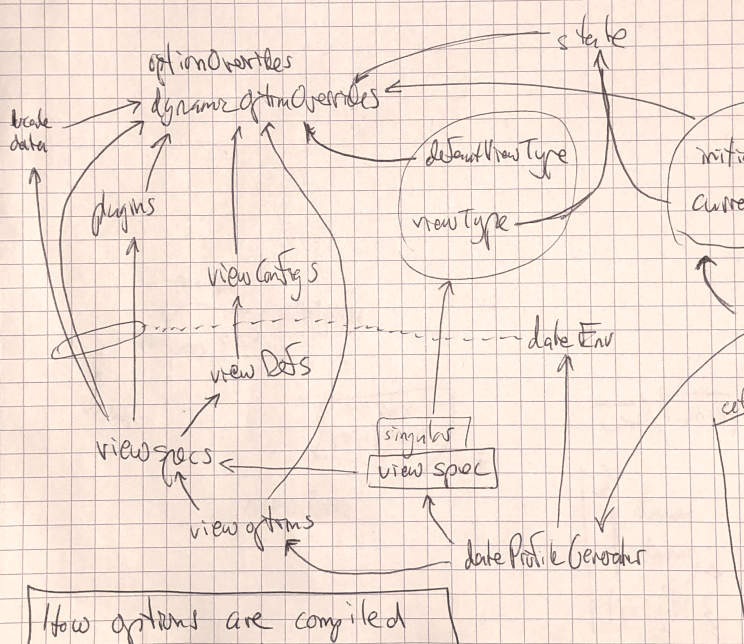 state
optionOverrides
dynamicOptionOverrides
locale
data
defaultViewType
initi
plugins
viewType
curre
viewConfigs
dateEnv
viewDefs
singular
viewspecs
view spec
viewoptions
dateProfileGenerator
How options are compiled